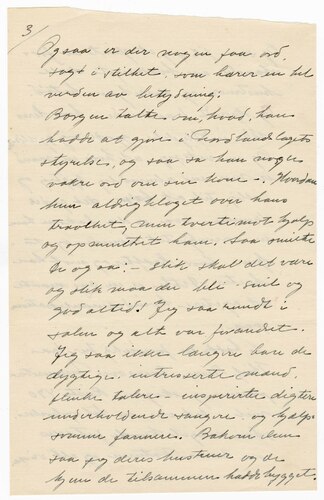 3/
Ogsaa er der nogen faa ord,
sagt i stilhet, som hører en til
verden av betydning:
Borgen talte om, hvad, han
hadde at gjøre i Nordlandslagets
styrelse, og saa sa han nogen
vakre ord om sin kone –. Hvordan
hun aldrig klaget over hans
travlhet, men tvertimot hjalp
og opmuntret ham. Saa smilte
og saa: – slik skal det være
og slik maa det bli – snil og
god altid! Jeg saa rundt i
salen og alt var forandret.
Jeg saa ikke længere bare de
dygtige, intresserte mænd,
flinke talere – inspirerte digtere
underholdende sangere – og hjælp-
somme farmere. Bakom dem
saa jeg deres hustruer og de
hjem de tilsammen hadde bygget.